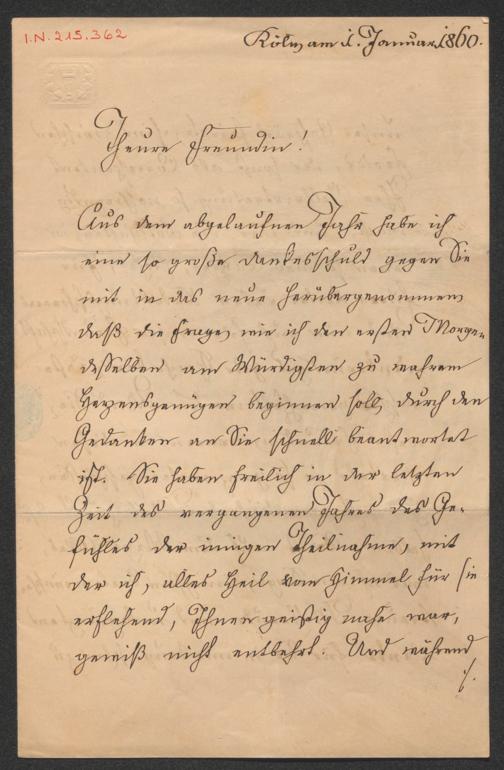 I.N. 215.362
Köln, am 1. Januar 1860.
Theure Freundin!
Aus dem abgelaufnen Jahr habe ich
eine so große Dankesschuld gegen Sie
mit in das neue herübergenommen,
daß die Frage, wie ich den ersten Morgen
desselben am Würdigsten zu wahrem
Herzensgenügen beginnen soll, durch den
Gedanken an Sie schnell beantwortet
ist. Sie haben freilich in der letzten
Zeit des vergangenen Jahres des Ge-
fühles der innigen Theilnahme, mit
der ich, alles Heil vom Himmel für Sie
erflehend, Ihnen geistig nahe war,
gewiß nicht entbehrt. Und während